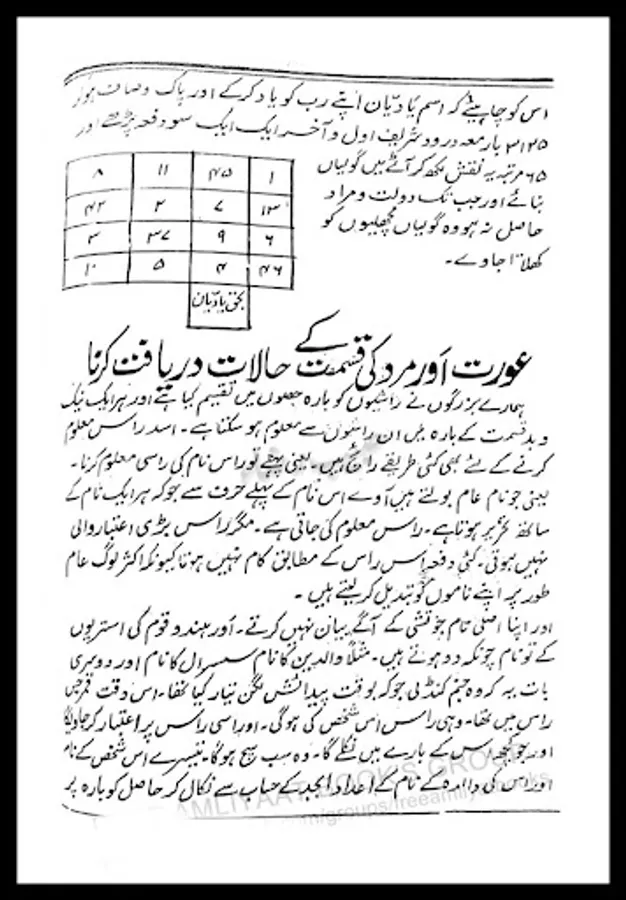 اس کو چاہیئے کہ اسم یَادَیَّان اپنے رب کو یاد کرکے اور پاک وصاف ہوکر
۳۱۲۵ بار معہ درود شریف اول و آخر ایک ایک سو دفعہ پڑھے اور
۶۵ مرتبہ یہ نقش لکھ کر آٹے میں گولیاں
بنائے اور جب تک دولت و مراد
حاصل نہ ہو وہ گولیاں مچھلیوں کو
کھلاتا جاوے۔
۸ ۱۱ ۴۵ ۱
۴۴ ۲ ۷ ۱۳
۳ ۴۷ ۹ ۶
۱۰ ۵ ۴ ۴۶
بحق یا دیان
عورت اور مرد کی قسمت کے حالات دریافت کرنا
ہمارے بزرگوں نے راشیوں کو بارہ حصوں میں تقسیم کیا ہے اور ہر ایک نیک
و بد قسمت کے بارہ میں ان راشیوں سے معلوم ہو سکتا ہے۔ اسد راس معلوم
کرنے کے لئے بھی کئی طریقے رائج ہیں۔ یعنی پہلے تو راس نام کی راسی معلوم کرنا۔
یعنی جو نام عام بولتے ہیں آوے اس نام کے پہلے حرف سے جو کہ ہر ایک نام کے
ساتھ تحریر ہوتا ہے۔ راس معلوم کی جاتی ہے۔ مگر راس بڑی اعتبار والی
نہیں ہوتی۔ کئی دفعہ اس راس کے مطابق کام نہیں ہوتا کیونکہ اکثر لوگ عام
طور پر اپنے ناموں کو تبدیل کر لیتے ہیں۔
اور اپنا اصلی نام جوتشی کے آگے بیان نہیں کرتے۔ اور ہندو قوم کی استریوں
کے تو نام چونکہ دو ہوتے ہیں۔ مثلاً والدین کا نام سسرال کا نام اور دوسری
بات یہ کہ وہ جنم کنڈلی جو کہ بوقت پیدائش لگن تیار کیا تھا۔ اس وقت قمر جس
راس میں تھا۔ وہی راس اس شخص کی ہوگی۔ اور اسی راس پر اعتبار کر جاویگا
اور جو کچھ اس کے بارے میں نکلے گا۔ وہ سب سچ ہوگا۔ تیسرے اس شخص کے نام
اور اس کی والدہ کے نام کے اعداد ابجد کے حساب سے نکال کر حاصل کو بارہ پر
AMLIYAAT BOOKS GROUP
m/groups/freeamliyatbooks